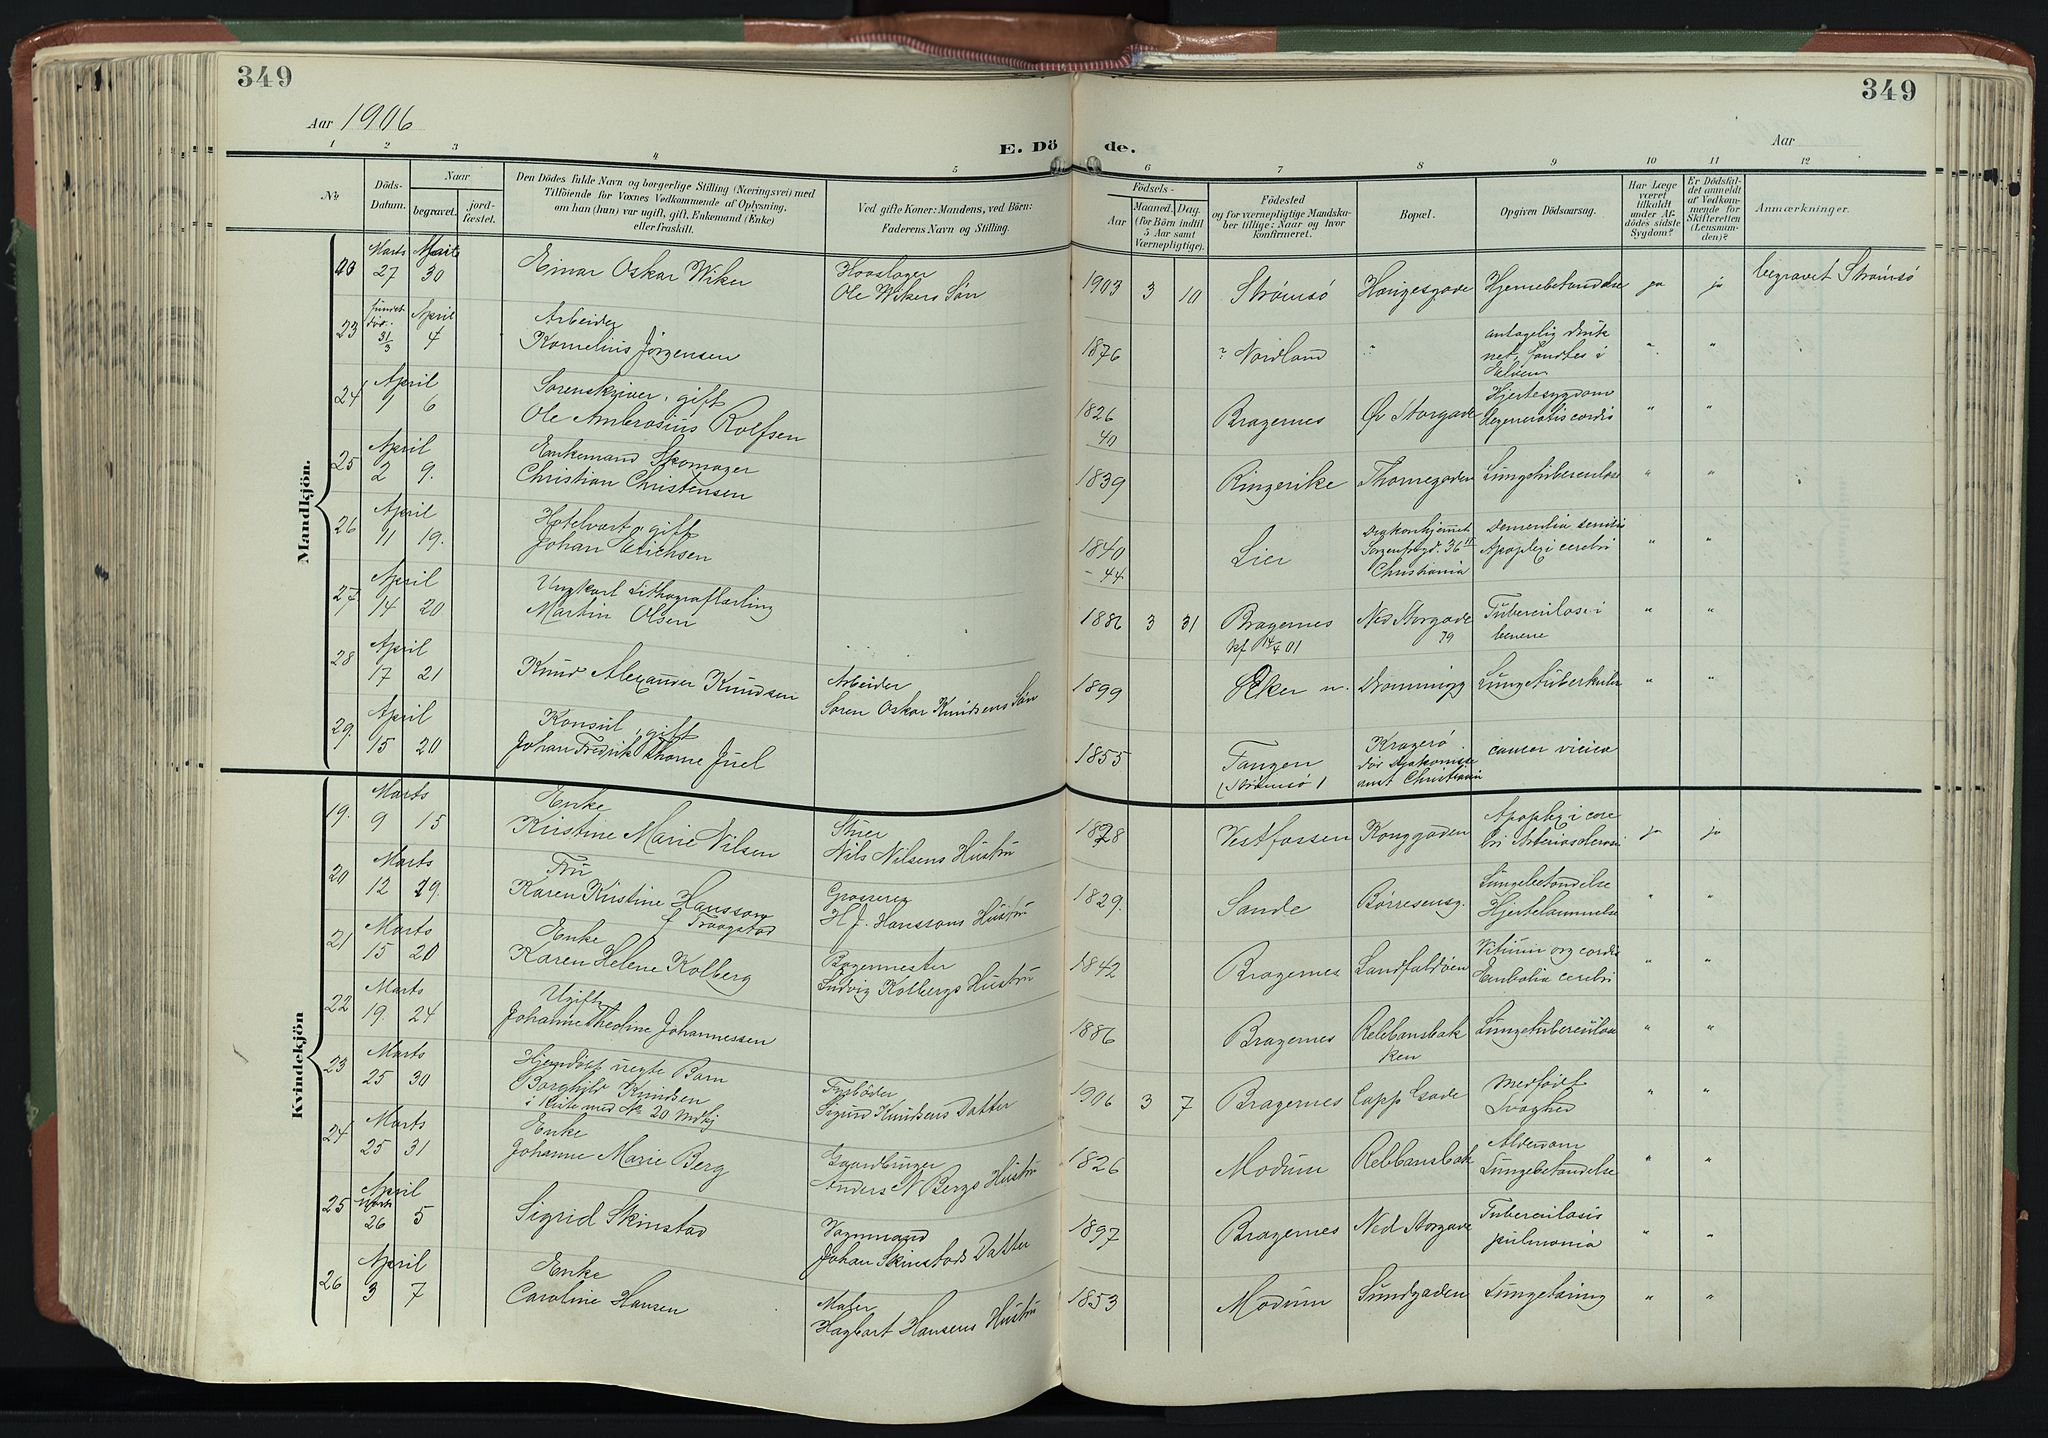 349
349
Aar 1906
Aar
E. Dö de.
1 2 3 4 5 6 7 8 9 10 11 12
No.
Döds-
Datum.
Naar
begravet.
jord-
fæstet.
Den Dödes fulde Navn og borgerlige Stilling (Næringsvei) med
Tilföiende for Voxnes Vedkommende af Oplysning,
om han (hun) var ugift, gift, Enkemand (Enke)
eller fraskilt.
Ved gifte Koner: Mandens, ved Börn:
Faderens Navn og Stilling.
Födsels-
Aar
Maaned. Dag.
(for Börn indtil
5 Aar samt
Værnepligtige).
Födested
og for værnepligtige Mandska-
ber tillige: Naar og hvor
konfirmeret.
Bopæl.
Opgiven Dödsaarsag.
Har Læge
været
tilkaldt
under Af-
dödes sidste
Sygdom?
Er Dödsfal-
det anmeldt
af Vedkom-
mende for
Skifteretten
(Lensman-
den)?
Anmærkninger.
Mandkjön.
Marts Marts
27 30 Einar Oskar Wiker
Ole Wikers Søn
1903 3 10 Strømsø Haugesgade Hjernebetændelse ja ja begravet Strømsø
23 fundet død 31/3 April 4
Arbeider
Kornelius Jørgensen
1876 ? Nordland " antagelig druk
net, fandtes i
Elven " "
24 April 1 6
Sorenskriver, gift
Ole Ambrosius Rolfsen
1826
40
Bragernes Øv Storgade Hjertesygdom
Degeneratis cordis " "
25 April 2 9.
Enkemand Skomager
Christian Christensen
1839 Ringerike Thornegaden Lungetuberculose " "
26 April 11 19.
Hotelvært, gift
Johan Erichsen
1840
- 44
Lier Diakonhjemmet
Sorgenfrigd. 36 II
Christiania
Dementia senilis
Apoplexi cerebri " "
27 April 14 20
Ungkarl Lithograflærling
Martin Olsen
1886 3 31 Bragernes
kf 14/4 01
Ned Storgade
79
Tuberculose i
benene " "
28 April 17 21
Knud Alexander Knudsen
Arbeider
Soren Oskar Knudsens Søn
1899 Eker n. Dronningg Lungetuberkulose " "
29. April 15 20
Konsul, gift
Johan Fredrik Thorne Juel
1855 Tangen
(Strømsø)
Kragerø.
dør Diakonisse
anst Christiania
cancer
Kvindekjön
19. Marts 9 15
Enke
Kristine Marie Nilsen
Stuer
Nils Nilsens Hustru
1828 Vestfossen Konggaden Apoplexi cere
bri Arteriosclerosis ja ja
20 Marts 12 19.
Fru
Karen Kristine Hansson
f Traagstad
Grosserer
H. J. Hanssons Hustru
1829. Sande Børresensg. Lungebetændelse
Hjertelammelse " "
21 Marts 15 20
Enke
Karen Helene Kolberg
Bagermester
Ludvig Kolbergs Hustru
1842 Bragernes Landfaldøen Vitium org cordis
Embolia cerebri " "
22 Marts 19. 24
Ugift,
Johanne Theoline Johannessen
1886 Bragernes Rebbansbak
ken
Lungetuberculose " "
23 Marts 25 30
Hjemdøbt uegte Barn
Borghild Knudsen
i Kiste med No 20 Mdkj
Fyrbøder
Sigurd Knudsens Datter
1906 3 7 Bragernes Capp Gade medfødt
Svaghed " "
24 Marts 25 31
Enke
Johanne Marie Berg
Gaardbruger
Anders N Bergs Hustru
1826 Modum Rebbansbak Alderdom
Lungebetændelse " "
25 Marts 26 April 5
Sigrid Skinstad
Vognmand
Johan Skinstads Datter
1897 Bragernes Ned Storgade Tuberculosis
pulmonia " "
26 April 3 7
Enke
Caroline Hansen
Maler
Hagbart Hansens Hustru
1853 Modum Sundgaden Lungetæring " "